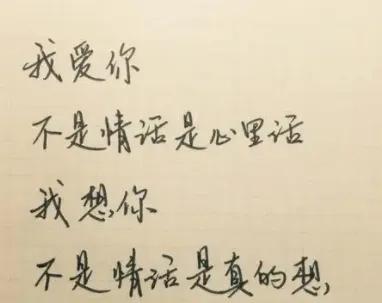 我爱你
不是情话是心里话
我想你
不是情话是真的想